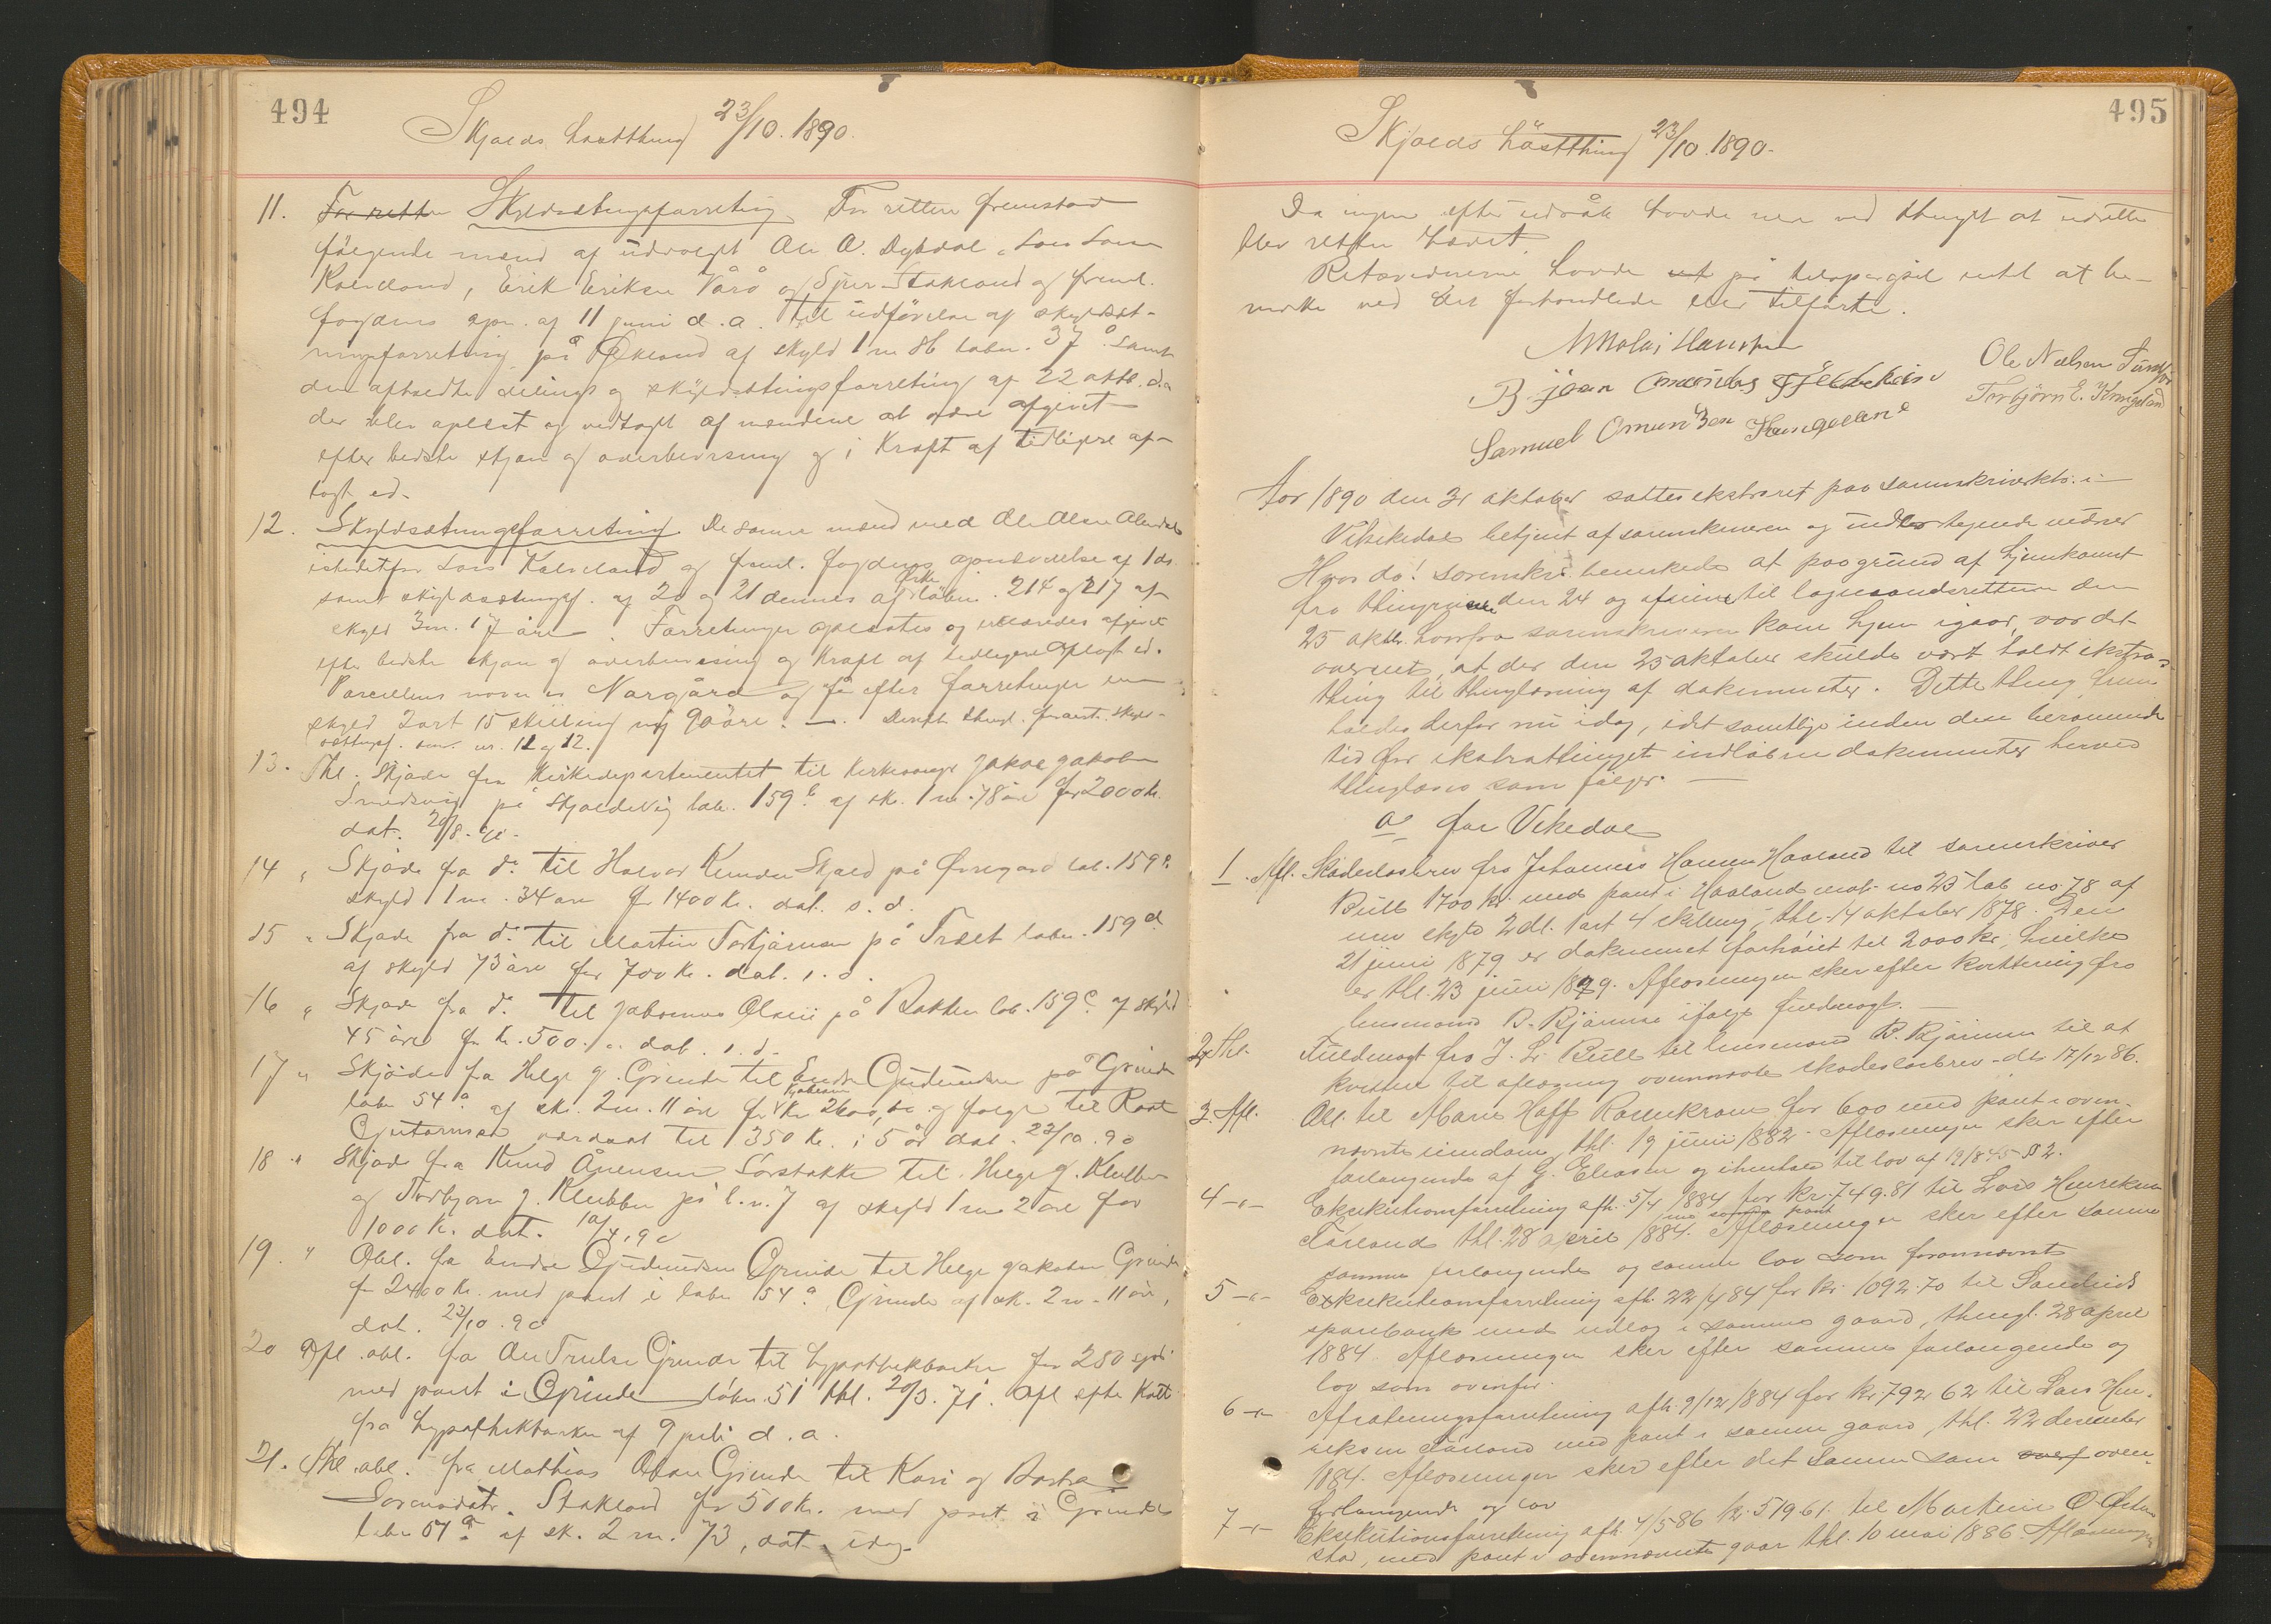 494
Skjolds høstthing 23/10. 1890.
11. For retten Skyldsætningsforretning For retten fremstod
følgende mænd af udvalget Ole O. Dybdal, Lars Larsen
Kalveland, Erik Eriksen Vårå og Sjur Stakland og freml.
fogdens opn. af 11 juni d. a. til udførelse af skyldsæt-
ningsforretning på Økland af skyld 1 m 86 labn. 37 a. samt
den afholdte delings og skyldsætningsforretning af 22 oktb. d.a
der blev oplæst og vedtaget af mændene at være afgivet
efter bedste skjøn og overbevisning og i Kraft af tidligere af-
lagt ed.
12. Skyldsætningsforretning De samme mænd med Ole Olsen
istedetfor Lars Kalveland og freml. fogdens opnævnelse af 1 ds.
samt skyldsætningsf. af 20 og 21 dennes af løbn. 214 og 217 af
skyld 3 m. 17 øre. Forretningen oplæstes og erklæredes afgivet
efter bedste skjøn og overbevisning og Kraft af tidligere aflagt ed.
Parcellens navn er Norgård og får efter forretningen en
skyld 2 ort 15 skilling ny 90 øre. — Derefter thingl. foranst. skyld-
sættngsf. nr. 11 og 12.
13. Thl. Skjøde fra Kirkedepartementet til Kirkesanger Jakob Jakobsen
Smedsvig på Skjoldevig labn. 159 b. af sk. 1 m. 78 øre for 2000 kr.
dat. 20/8. 90.
14 " Skjøde fra do. til Halvor Knudsen Skjold på Øvregard lab. 159
skyld 1 m. 34 øre for 1400 kr. dat. s. d.
15 " Skjøde fra do. til Martin Torbjørnsen på Træet labn. 159 d.
af skyld 73 øre for 700 kr. dat. s. d.
16 " Skjøde fra do. til Johannes Olsen på Bakken lab. 159 e. af skyld
45 øre for kr. 500. dat. s. d.
17 " Skjøde fra Helge J. Grinde til Endre Gudmundsen på Grinde
labn 54 a. af sk. 2 m. 11 øre for kr 2600,00 og følge til Kaat
Guttormsen værdsat til 350 kr. i 5 år dat. 22/10. 90
18 " Skjøde fra Knud Ånensen Sørstakke til Helge J. Klubben
og Torbjørn J. Klubben på l. n. 7 af skyld 1 m 2 øre for
1000 kr. dat. 10/4. 90
19. " Obl. fra Endre Gudmundsen Grinde til Helge Jakobsen Grinde
for 2400 kr. med pant i labn 54 a Grinde af sk. 2 m. 11 øre,
dat. 22/10. 90
20 Afl. obl. fra Ole Trulsen Grinde til hypothekbanken for 250 spd
med pant i Grinde løbn. 51 thl. 20/3. 71. Afl efter Kvitt
fra hypothekbanken af 9 juli d. a.
21. Thl. obl. fra Mathias Olsen Grinde til Kari og Barbra
Sørensdatr. Stakland for 500 kr. med pant i Grinde
labn 57 a. af sk. 2 m. 73, dat. idag.
495
Skjolds høstthing 23/10. 1890.
Da ingen efter udråb havde mer ved thinget at udrette
blev retten hævet.
Retsvidnerne havde på tilspørgsel intet at be-
mærke ved det forhandlede eller tilførte.
Nikolai Hansen
Bjørn Omundsen Ole Nielsen
Samuel Omundsen Torbjørn E.
Aar 1890 den 31 oktober sattes ekstraret paa sorenskriverktr. i
Vikedal betjent af sorenskriveren og undertegnede vidner
Hvor da! sorenskr. bemerkede at paagrund af hjemkomst
fra thingreise den 24 og afreise til lagmandsretten den
25 oktbr. hvorfra sorenskriveren kom hjem igaar, var det
overseet, at der den 25 oktober skulde vært holdt ekstra-
thing til thinglæsning af dokumenter. Dette thing frem
holdes derfor nu idag, idet samtlige inden den berammede
tid for ekstrathinget indløbne dokumenter herved
thinglæses som følger. —
a for Vikedal
1. Afl. Skadesløsbrev fra Johannes Hansen Haaland til sorenskriver
Bull 1700 kr. med pant i Haaland matr. no 25 lab no 78 af
ny skyld 2 dl. 1 ort 4 skilling, thl. 14 oktober 1878. Den
21 juni 1879 er dokumentet forhøiet til 2000 kr, hvilket
er thl. 23 juni 1879. Aflæsningen sker efter kvittering fra
lensmand B. Bjørnsen ifølge fuldmagt. —
2. Thl. Fuldmagt fra J. L. Bull til lensmand B. Bjørnsen til at
kvittere til aflæsning ovennævnte skadesløsbrev - dt. 17/12 86.
3. Afl. Obl. til Marie Hoff Rosenkrans for 600 med pant i oven-
nævnte eiendom, thl. 19 juni 1882. Aflæsningen sker efter
forlangende af G. Eliasen og i henhold til lov af 19/8 45 § 2.
4 -"- Eksekutionsforretning afh. 5/4 1884 for kr. 749.81 til Lars Henriksen
i samme pant
Førland thl. 28 april 1884. Aflæsningen sker efter samme
samme forlangende og samme lov som forannævnt
5 -"- Eksekutionsforretning afh. 22/4 84 for kr. 1092.70 til Sandeids
sparebank med udlæg i samme gaard, thingl. 28 april
1884. Aflæsningen sker efter samme forlangende og
lov som ovenfor.
6 -"- Afsætningsforretning afh. 9/12 1884 for kr. 792 62 til Lars Hen-
riksen Førland med pant i samme gaard, thl. 22 december
1884. Aflæsningen sker efter det samme som oven-
forlangende og lov
7 -"- Eksekutionsforretning afh. 4/5 86 kr. 519 61. til Martin O.
stad, med pant i ovennævnte gaar thl. 10 mai 1886 Aflæsningen